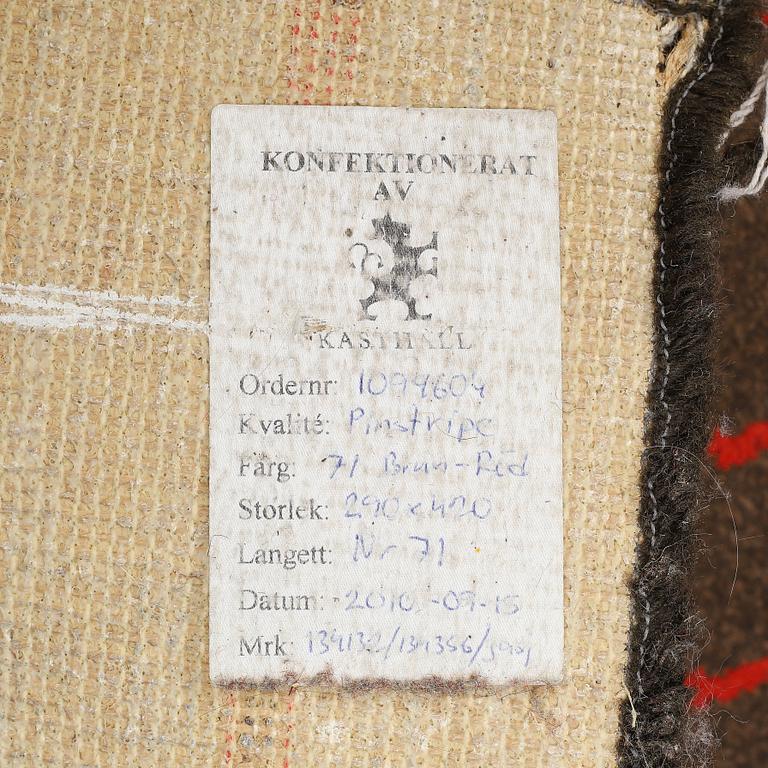 KONFEKTIONERAT
AV
KASTHALL
Ordernr: 1099604
Kvalité: Pinstripe
Färg: 71 Brun-Röd
Storlek: 290x420
Langett: Nr 71
Datum: 2010-09-15
Mrk: 134132/134356/